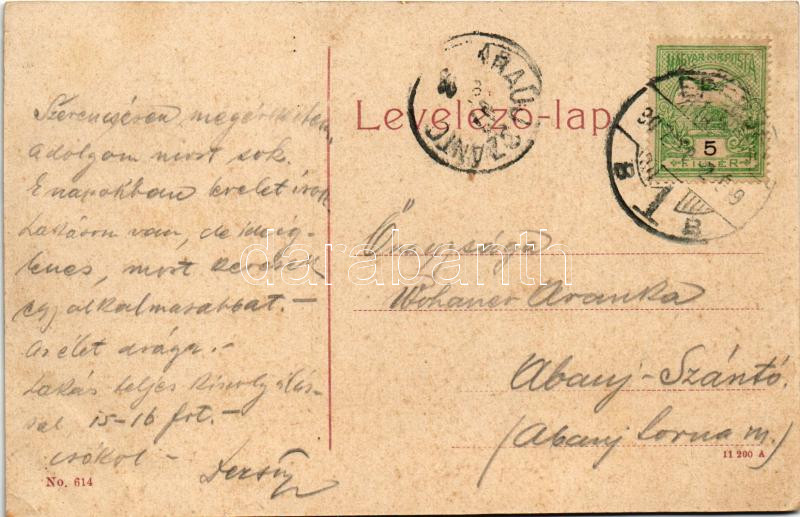 Szerencsésen megérkeztem,
a dolgom most sok.
E napokban levelet írok.
Lakásom van, de ideig-
lenes, mert keresek
egy alkalmasabbat. -
Az élet drága. -
Lakás teljes kiszolgálás-
sal 15-16 frt. -
csókol -
No. 614
Levelező-lap
ABAÚJSZÁNTÓ
MAGYAR KIR. POSTA
5
FILLÉR
B 1 B
Őnagysága
Wohaner Aranka
Abauj-Szántó.
(Abauj Torna m.)
11 200 A
darabanth